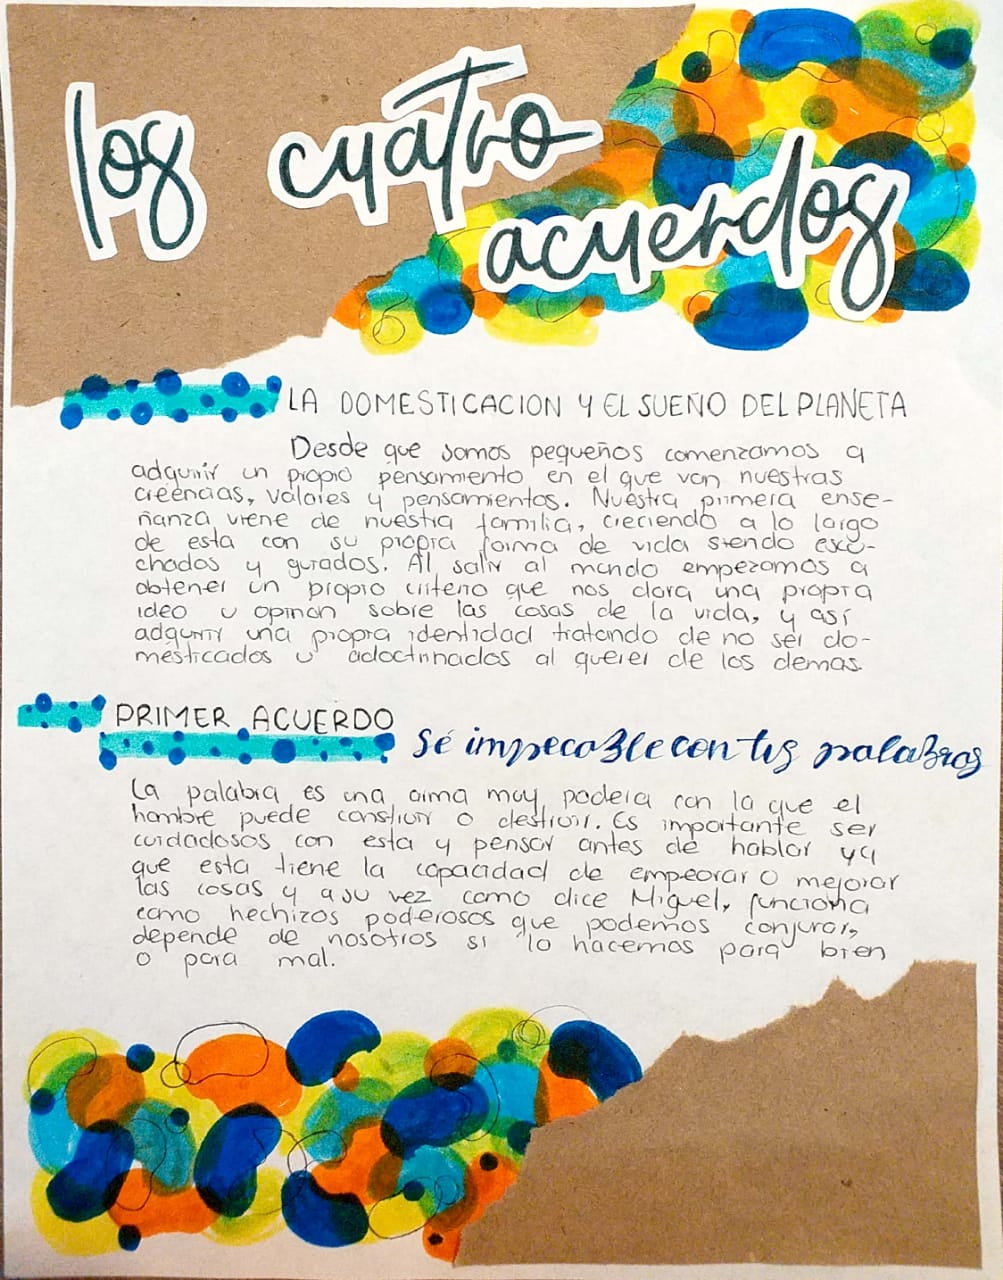 los cuatro
acuerdos
LA DOMESTICACION Y EL SUEÑO DEL PLANETA
Desde que somos pequeños comenzamos a
adquirir un propio pensamiento en el que van nuestras
creencias, valores y pensamientos. Nuestra primera ense-
ñanza viene de nuestra familia, creciendo a lo largo
de esta con su propia forma de vida siendo escu-
chados y guiados. Al salir al mundo empezamos a
obtener un propio criterio que nos dara una propia
idea u opinion sobre las cosas de la vida, y así
adquirir una propia identidad tratando de no ser do-
mesticados u adoctrinados al querer de los demas.
PRIMER ACUERDO
Sé impecable con tus palabras
La palabra es una arma muy podera con la que el
hombre puede construir o destruir. Es importante ser
cuidadosos con esta y pensar antes de hablar ya
que esta tiene la capacidad de empeorar o mejorar
las cosas y a su vez como dice Miguel, funciona
como hechizos poderosos que podemos conjurar,
depende de nosotros si lo hacemos para bien
o para mal.